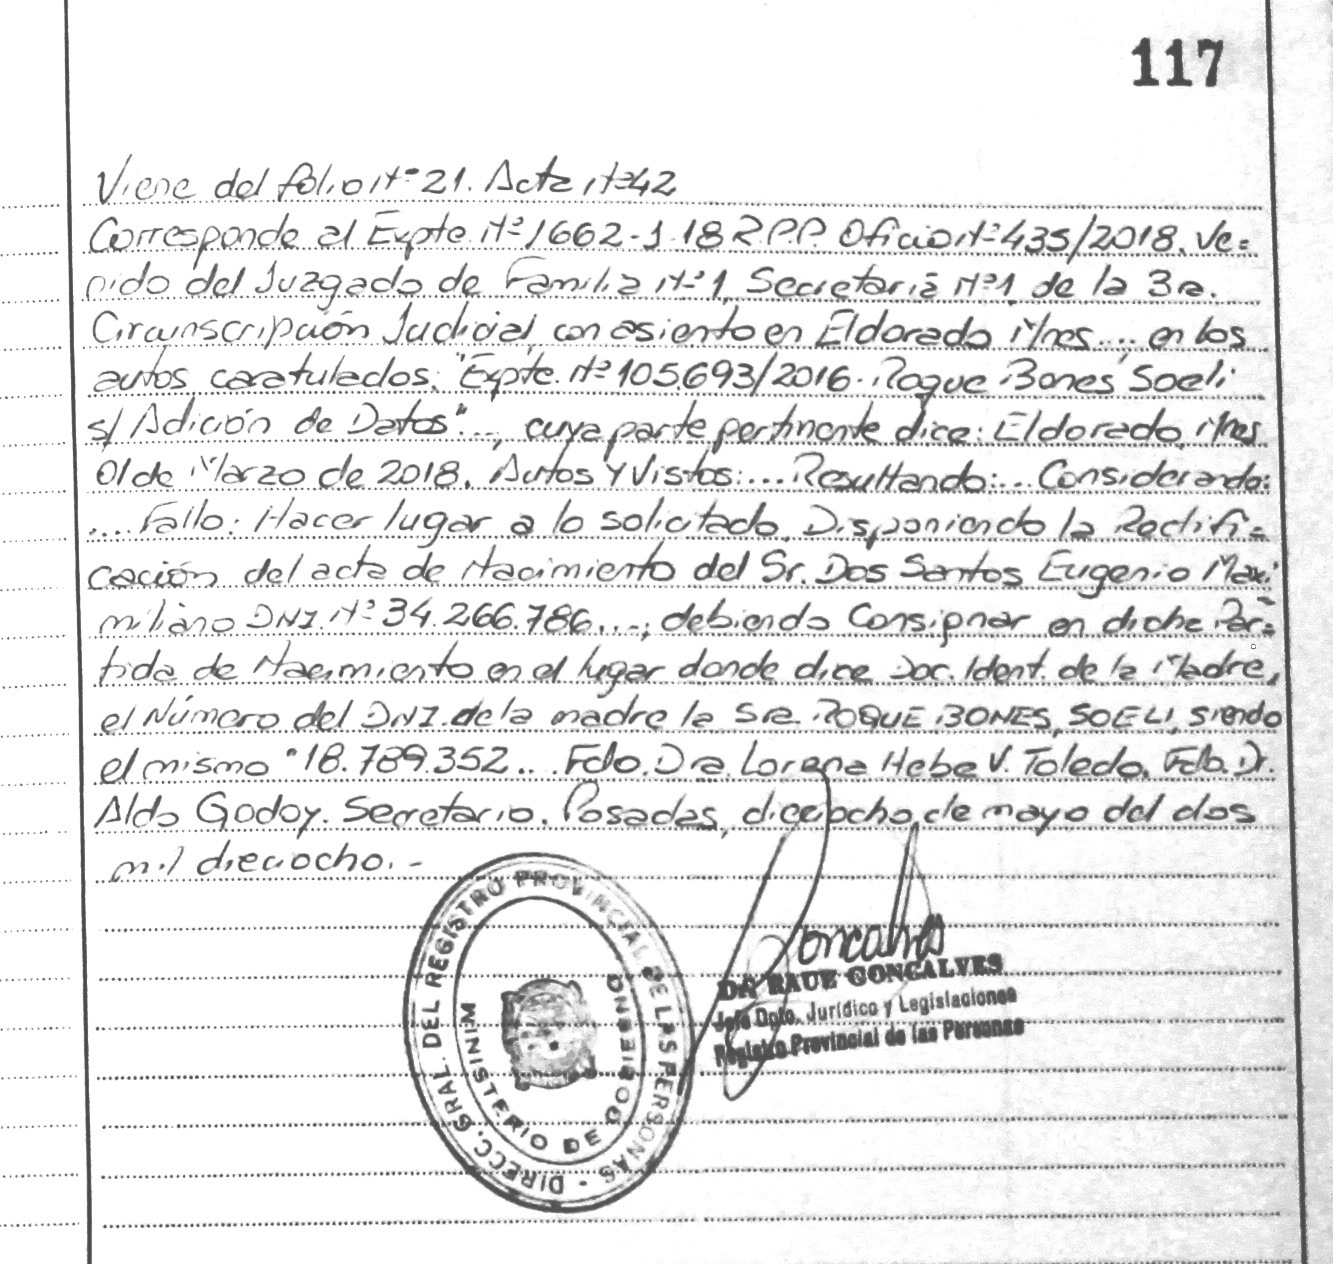 117
Viene del folio Nº 21. Acta Nº 42
Corresponde al Expte. Nº 1662-J-18 R.P.P. Oficio Nº 435/2018. Ve=
nido del Juzgado de Familia Nº 1, Secretaría Nº 1, de la 3ra.
Circunscripción Judicial, con asiento en Eldorado Mnes...., en los
autos caratulados: "Expte. Nº 105.693/2016. Roque Bones Soeli
s/ Adición de Datos"..., cuya parte pertinente dice: Eldorado, Mnes.
01 de Marzo de 2018. Autos Y Vistos:... Resultando:... Considerando:
.... Fallo: Hacer lugar a lo solicitado. Disponiendo la Rectifi=
cación del acta de Nacimiento del Sr. Dos Santos Eugenio Maxi
miliano DNI. Nº 34.266.786...., debiendo Consignar en dicha Par=
tida de Nacimiento en el lugar donde dice Doc. Ident. de la Madre,
el Número del DNI. de la madre la Sra. ROQUE BONES, SOELI, siendo
el mismo "18.789.352... Fdo. Dra. Lorena Hebe V. Toledo. Fdo. Dr.
Aldo Godoy. Secretario. Posadas, dieciocho de mayo del dos
mil dieciocho.-
DIRECC. GRAL. DEL REGISTRO PROVINCIAL DE LAS PERSONAS -
MINISTERIO DE GOBIERNO
Goncalves
DRA RAUE GONCALVES
Jefe Dpto. Jurídico y Legislaciones
Registro Provincial de las Personas